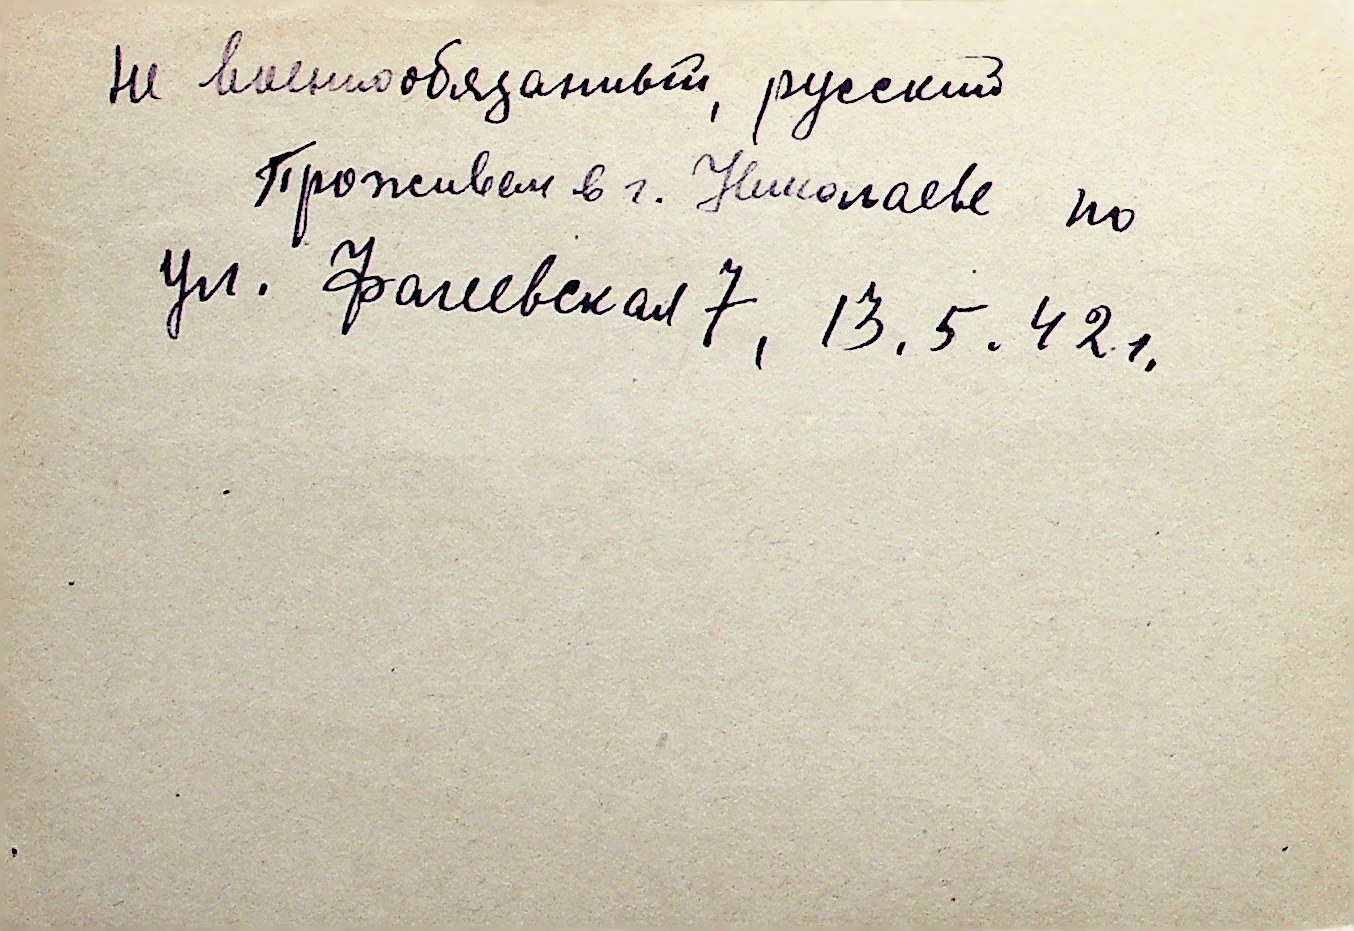 Не военнообязанный, русский
Проживал в г. Николаеве по
ул. Фалеевская 7, 13.5.42 г.